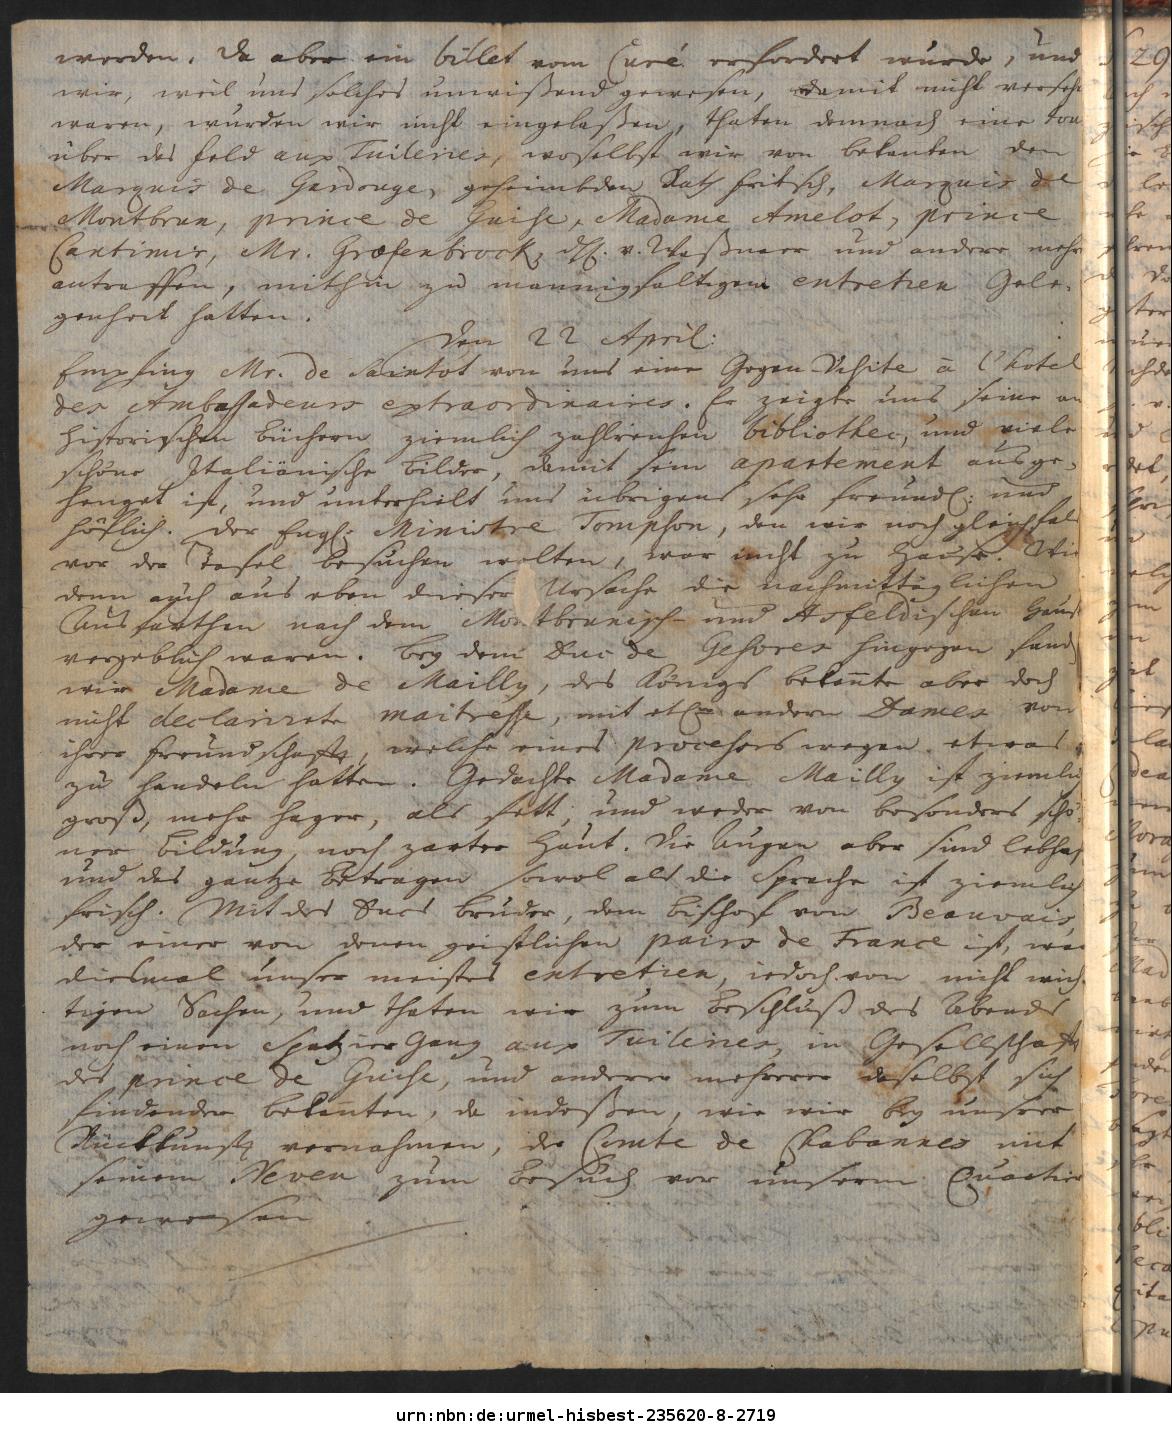 werden. Da aber ein billet vom Curé erfordert wurde, und
wir, weil uns solches unwißend gewesen, damit nicht verseh
waren, wurden wir nicht eingelaßen, thaten demnach eine tou
über das feld aux Tuileries, woselbst wir von bekanten den
Marquis de Gardouge, geheimbden Rath fritsch, Marquis de
Montbrun, prince de Guise, Madame Amelot, prince
Cantimir, Mr. Græfenbrock, v. Waßnaer und andere mehr
antraffen, mithin zu mannigfaltigem entretien Gele-
genheit hatten.
Den 22 April:
Empfing Mr. de Saintot von uns eine Gegen Visite à l'hotel
des Ambassadeurs extraordinaires. Er zeigte uns seine an
historischen büchern ziemlich zahlreichen bibliothec, und viele
schöne Italiänische bilder, damit sein apartement ausge-
henget ist, und unterhielt uns übrigens sehr freundl: und
höflich. Der Engl: Ministre Tompson, den wir noch gleichfals
vor der Tafel besuchen wolten, war nicht zu Hause. Wie
denn auch aus eben dieser Ursache die nachmittäglichen
Ausfarthen nach dem Montbrunisch- und Asfeldischen Hause
vergeblich waren. bey dem Duc de Gesvres hingegen fand
wir Madame de Mailly, des Königs bekante aber doch
nicht declarirete maitresse, mit andern Dames von
ihrer freundschafft, welche eines processes wegen etwas
zu handeln hatten. Gedachte Madame Mailly ist ziemlich
groß, mehr hager, als fett, und weder von besonders schö-
ner bildung noch zarter Haut. Die Augen aber sind lebhaf
und das gantze betragen sowol als die Sprache ist ziemlich
frisch. Mit des Ducs bruder, dem bischof von Beauvais,
der einer von denen geistlichen pairs de France ist, war
diesmal unser meistes entretien, iedoch von nicht wich-
tigen Sachen, und thaten wir zum beschluß des Abends
noch einen Spatzier Gang aux Tuileries, in Gesellschafft
des prince de Guise, und anderer mehrerer daselbst sich
findender bekanten, da indeßen, wie wir bey unserer
Rückkunfft vernahmen, der Comte de Chabannes mit
seinem Neveu zum besuch vor unserm Quartier
gewesen
urn:nbn:de:urmel-hisbest-235620-8-2719